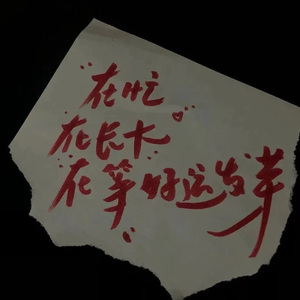 在忙
在长大
在等好运发芽